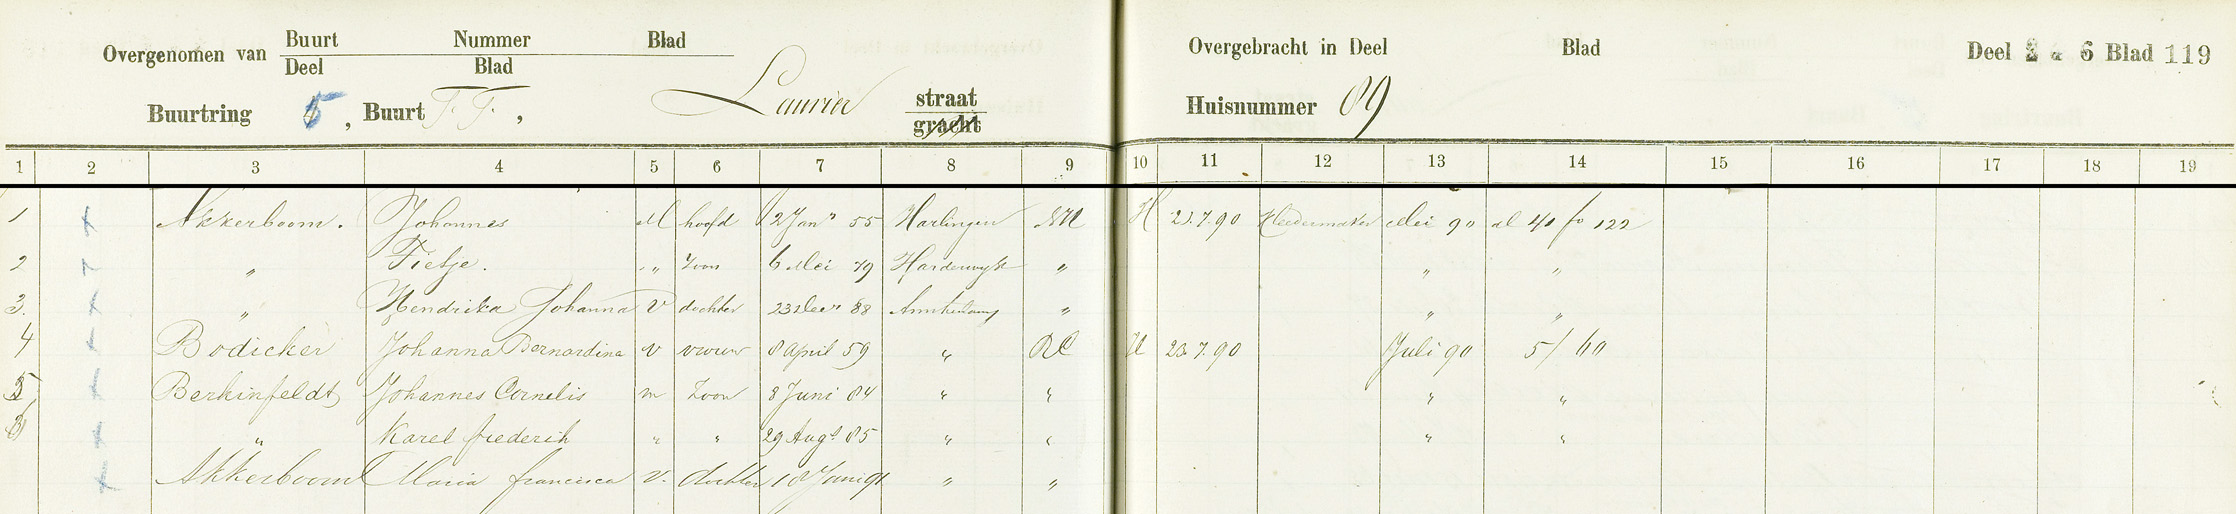 Buurt Nummer Blad
Overgenomen van
Deel Blad
Overgebracht in Deel Blad Deel 2 a 6 Blad 119
Buurtring 5, Buurt F.F., Laurier straat
gracht
Huisnummer 89
1 2 3 4 5 6 7 8 9 10 11 12 13 14 15 16 17 18 19
1 Akkerboom. Johannes M hoofd 2 Jan" 55 Harlingen NH H 23.7.90 Kleedermaker Mei 90 al 40 fo 122
2 " Fietje. " Zoon 6 Mei 79 Harderwyk " " "
3. " Hendrika Johanna V dochter 23 Dec" 88 Amsterdam " " "
4 Bödicker Johanna Bernardina V vrouw 8 April 59 " RC H 23.7.90 Juli 90 5/60
5 Berkinfeldt Johannes Cornelis m Zoon 8 Juni 84 " " " "
6 " Karel frederik " " 29 Augt 85 " " " "
Akkerboom Maria francisca V. dochter 18 Juni 91 " "